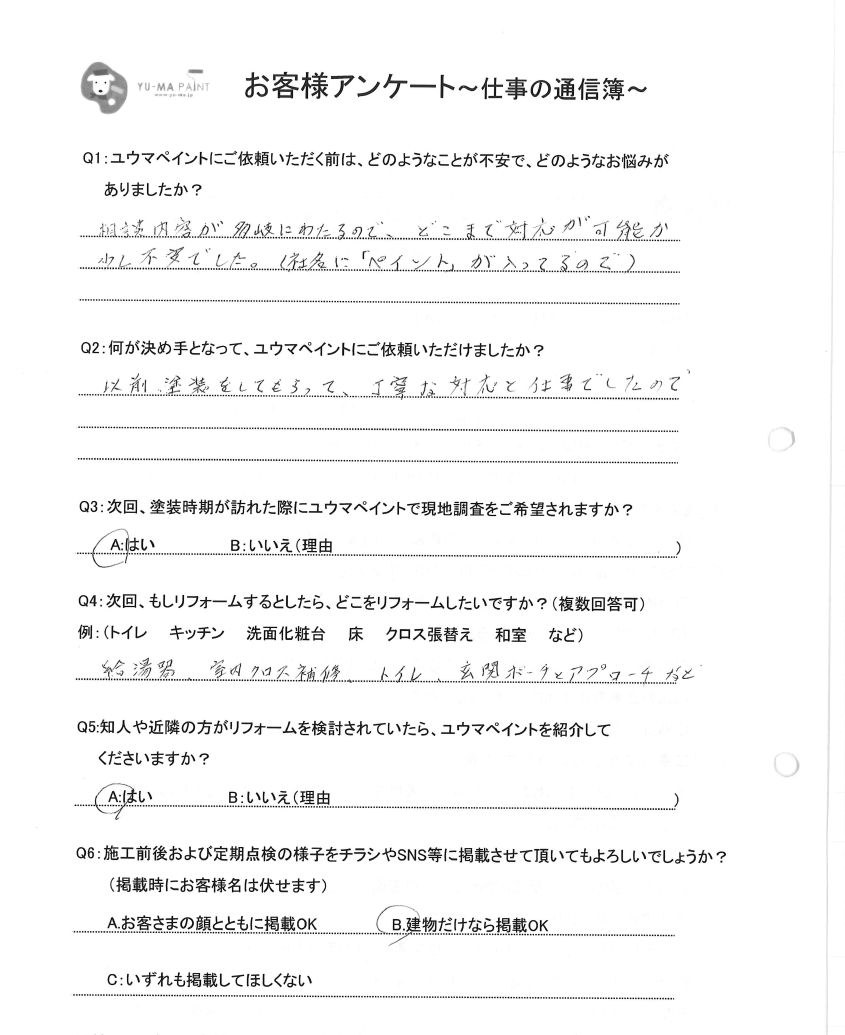 YU-MA PAINT
www.yu-ma.jp
お客様アンケート～仕事の通信簿～
Q1：ユウマペイントにご依頼いただく前は、どのようなことが不安で、どのようなお悩みが
ありましたか？
相談内容が多岐にわたるので、どこまで対応が可能か
少し不安でした。（社名に「ペイント」が入ってるので）
Q2：何が決め手となって、ユウマペイントにご依頼いただけましたか？
以前、塗装をしてもらって、丁寧な対応と仕事でしたので
Q3：次回、塗装時期が訪れた際にユウマペイントで現地調査をご希望されますか？
A：はい　B：いいえ（理由　）
Q4：次回、もしリフォームするとしたら、どこをリフォームしたいですか？（複数回答可）
例：（トイレ　キッチン　洗面化粧台　床　クロス張替え　和室　など）
給湯器、室内クロス補修、トイレ、玄関ポーチとアプローチなど
Q5:知人や近隣の方がリフォームを検討されていたら、ユウマペイントを紹介して
くださいますか？
A：はい　B：いいえ（理由　）
Q6：施工前後および定期点検の様子をチラシやSNS等に掲載させて頂いてもよろしいでしょうか？
（掲載時にお客様名は伏せます）
A.お客さまの顔とともに掲載OK　B.建物だけなら掲載OK
C：いずれも掲載してほしくない